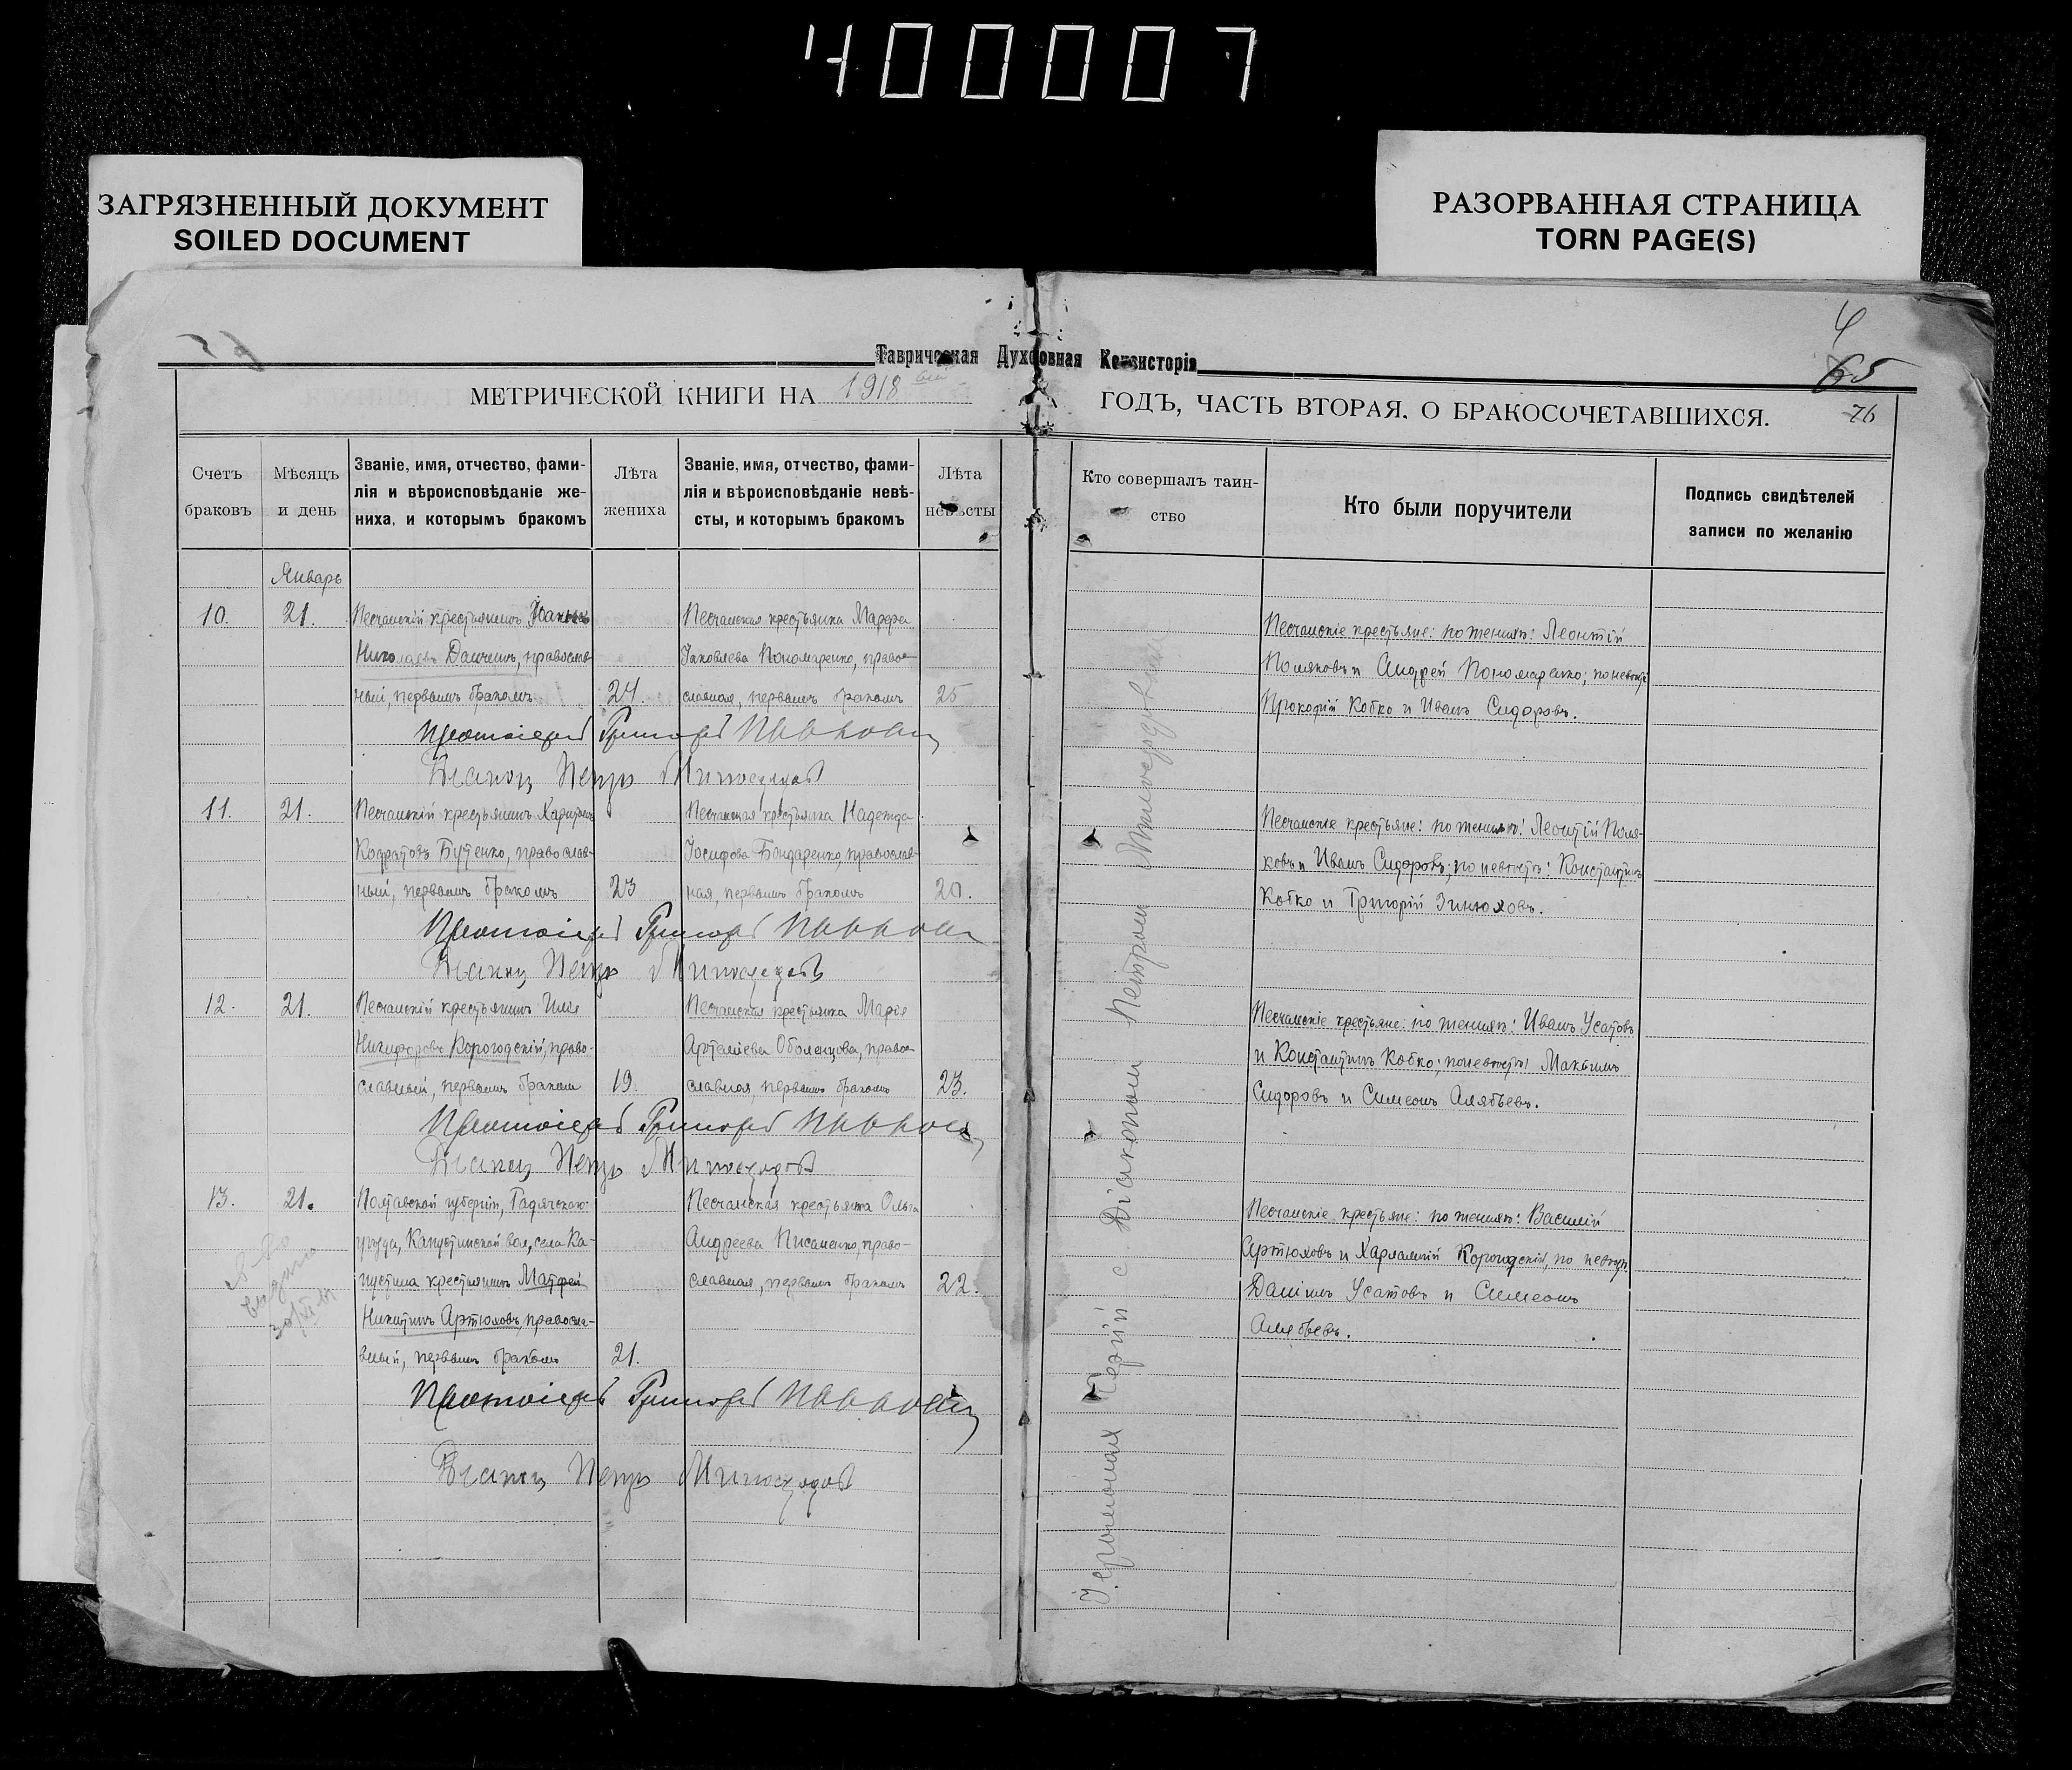 400007
ЗАГРЯЗНЕННЫЙ ДОКУМЕНТ
SOILED DOCUMENT
РАЗОРВАННАЯ СТРАНИЦА
TORN PAGE(S)
4
65
76
Таврическая Духовная Консисторія
МЕТРИЧЕСКОЙ КНИГИ НА 1918
ГОДЪ, ЧАСТЬ ВТОРАЯ. О БРАКОСОЧЕТАВШИХСЯ.
Счетъ браковъ
Мѣсяцъ и день
Званіе, имя, отчество, фами-
лія и вѣроисповѣданіе же-
ниха, и которымъ бракомъ
Лѣта жениха
Званіе, имя, отчество, фами-
лія и вѣроисповѣданіе невѣ-
сты, и которымъ бракомъ
Лѣта невѣсты
Кто совершалъ таин-
ство
Кто были поручители
Подпись свидѣтелей
записи по желанію
Январь
10.
21.
Песчанскій крестьянинъ Іоаннъ
Николаевъ, православ-
ный, первымъ бракомъ
24
Песчанская крестьянка Марфа
Іаковлева Пономаренко, право-
славная, первымъ бракомъ
25
Песчанскіе крестьяне: по женихѣ: Леонтій
Поляковъ и Андрей Пономаренко; по невѣстѣ
Прокопій Кобко и Иванъ Сидоровъ.
Протоіерей Григорій
Діаконъ Петръ Милосердовъ
11.
21.
Песчанскій крестьянинъ Харитонъ
Кодратовъ Бутенко, православ-
ный, первымъ бракомъ
23
Песчанская крестьянка Надежда
Іосифова Бондаренко, православ-
ная, первымъ бракомъ
20.
Песчанскіе крестьяне: по женихѣ: Леонтій Поля-
ковъ и Иванъ Сидоровъ; по невѣстѣ: Константинъ
Кобко и Григорій Зинюховъ.
Протоіерей Григорій
Діаконъ Петръ Милосердовъ
12.
21.
Песчанскій крестьянинъ Илія
Никифоровъ Корогодскій, право-
славный, первымъ бракомъ
19.
Песчанская крестьянка Марія
Оболенцова, право-
славная, первымъ бракомъ
23.
Песчанскіе крестьяне: по женихѣ: Иванъ Усатовъ
и Константинъ Кобко; по невѣстѣ: Максимъ
Сидоровъ и Симеонъ Алябьевъ.
Протоіерей Григорій
Діаконъ Петръ Милосердовъ
13.
21.
Полтавской губерніи, Гадячскаго
уѣзда, Капустинской вол., села Ка-
пустина крестьянинъ Матфей
Никитинъ Артюховъ, правосла-
вный, первымъ бракомъ
21.
Песчанская крестьянка Ольга
Андреева Писаненко, право-
славная, первымъ бракомъ
22.
Песчанскіе крестьяне: по женихѣ: Василій
Артюховъ и Харлампій Корогодскій, по невѣстѣ
Даніилъ Усатовъ и Симеонъ
Алябьевъ.
Протоіерей Григорій
Діаконъ Петръ Милосердовъ
Іеромонахъ с. Діакономъ Петромъ Милосердовымъ